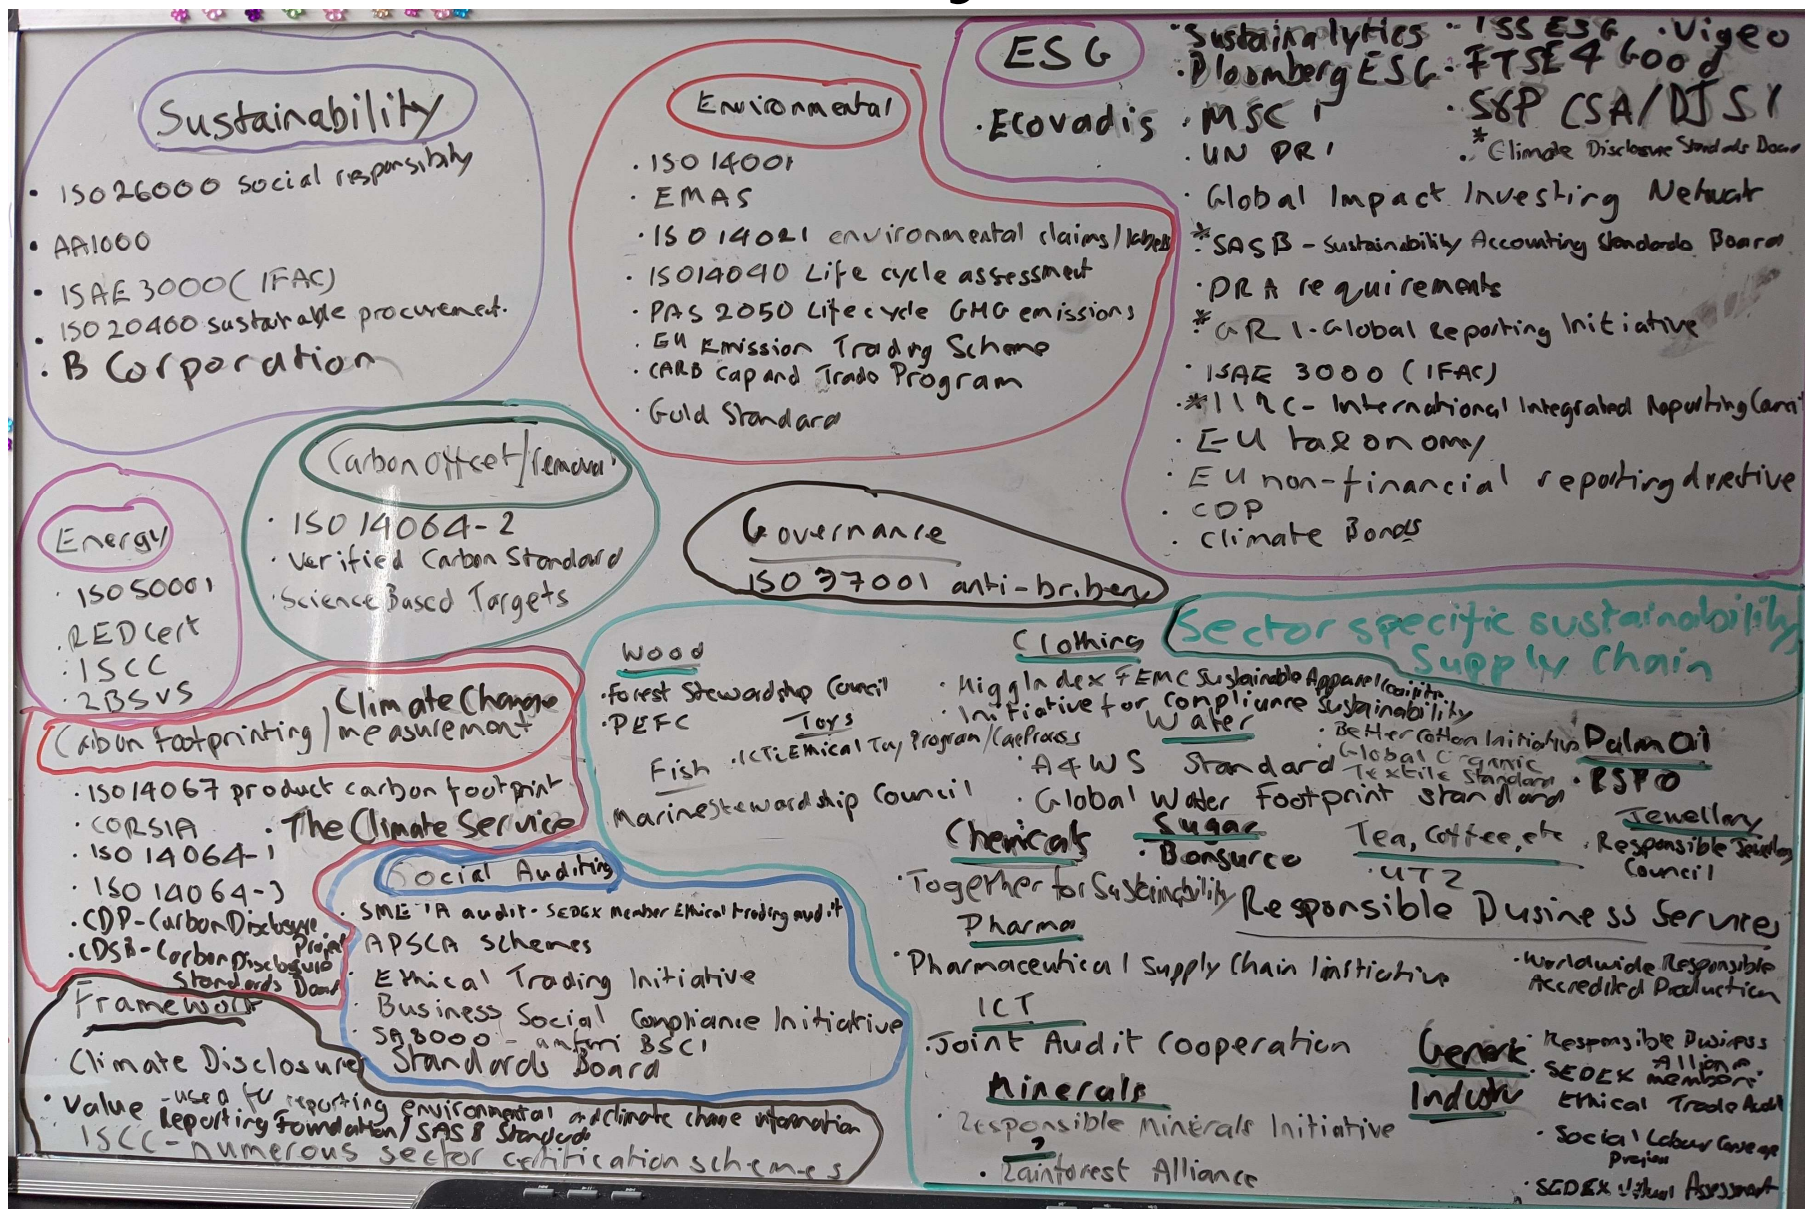 Sustainability
• ISO 26000 social responsibility
• AA1000
• ISAE 3000 (IFAC)
• ISO 20400 sustainable procurement.
• B Corporation
Environmental
• ISO 14001
• EMAS
• ISO 14021 environmental claims/labels
• ISO14040 Life cycle assessment
• PAS 2050 Lifecycle GHG emissions
• EU Emission Trading Scheme
• CARB Cap and Trade Program
• Gold Standard
ESG
• Sustainalytics • ISS ESG • Vigeo
• Bloomberg ESG • FTSE4Good
• Ecovadis • MSCI • S&P CSA/DJSI
• UN PRI • * Climate Disclosure Standards Board
• Global Impact Investing Network
* SASB - Sustainability Accounting Standards Board
• PRA requirements
* GRI - Global Reporting Initiative
• ISAE 3000 (IFAC)
• * IIRC - International Integrated Reporting
• EU taxonomy
• EU non-financial reporting directive
• CDP
• Climate Bonds
Carbon Offset/removal
• ISO 14064-2
• Verified Carbon Standard
• Science Based Targets
Governance
ISO 37001 anti-bribery
Energy
• ISO 50001
• REDcert
• ISCC
• 2BSvs
Climate Change
Carbon Footprinting/measurement
• ISO14067 product carbon footprint
• CORSIA • The Climate Service
• ISO 14064-1
• ISO 14064-3
• CDP - Carbon Disclosure
Project
• CDSB - Carbon Disclosure
Standards Board
Social Auditing
• SMETA audit - SEDEX Member Ethical trading audit
• APSCA schemes
• Ethical Trading Initiative
• Business Social Compliance Initiative
• SA8000 - amfori BSCI
Framework
Climate Disclosure Standards Board
- used for reporting environmental and climate change information
• Value Reporting Foundation/SASB Standards
ISCC - numerous sector certification schemes
Sector specific sustainability
Supply Chain
Wood
• Forest Stewardship Council
• PEFC
Toys
• ICTi Ethical Toy Program/
Fish
Marine Stewardship Council
Clothing
• Higg Index FEMC Sustainable Apparel
• Initiative for compliance sustainability
• Better Cotton Initiative
• Global Organic
Textile Standard
Water
• A4WS Standard
• Global Water Footprint standard
Palm Oil
• RSPO
Chemicals
• Together for Sustainability
Sugar
• Bonsucro
Tea, Coffee, etc
• UTZ
Jewellery
• Responsible Jewellery
Council
Pharma
• Pharmaceutical Supply Chain Initiative
Responsible Business Services
• Worldwide Responsible
Accredited Production
ICT
• Joint Audit Cooperation
Minerals
• Responsible Minerals Initiative
?
• Rainforest Alliance
Generic
Industry
• Responsible Business
Alliance
• SEDEX members
Ethical Trade Audit
• Social Labour Converge
Project
• SEDEX Virtual Assessment